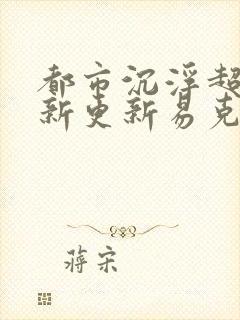 都市沉浮超
新更新易克
蒋宋